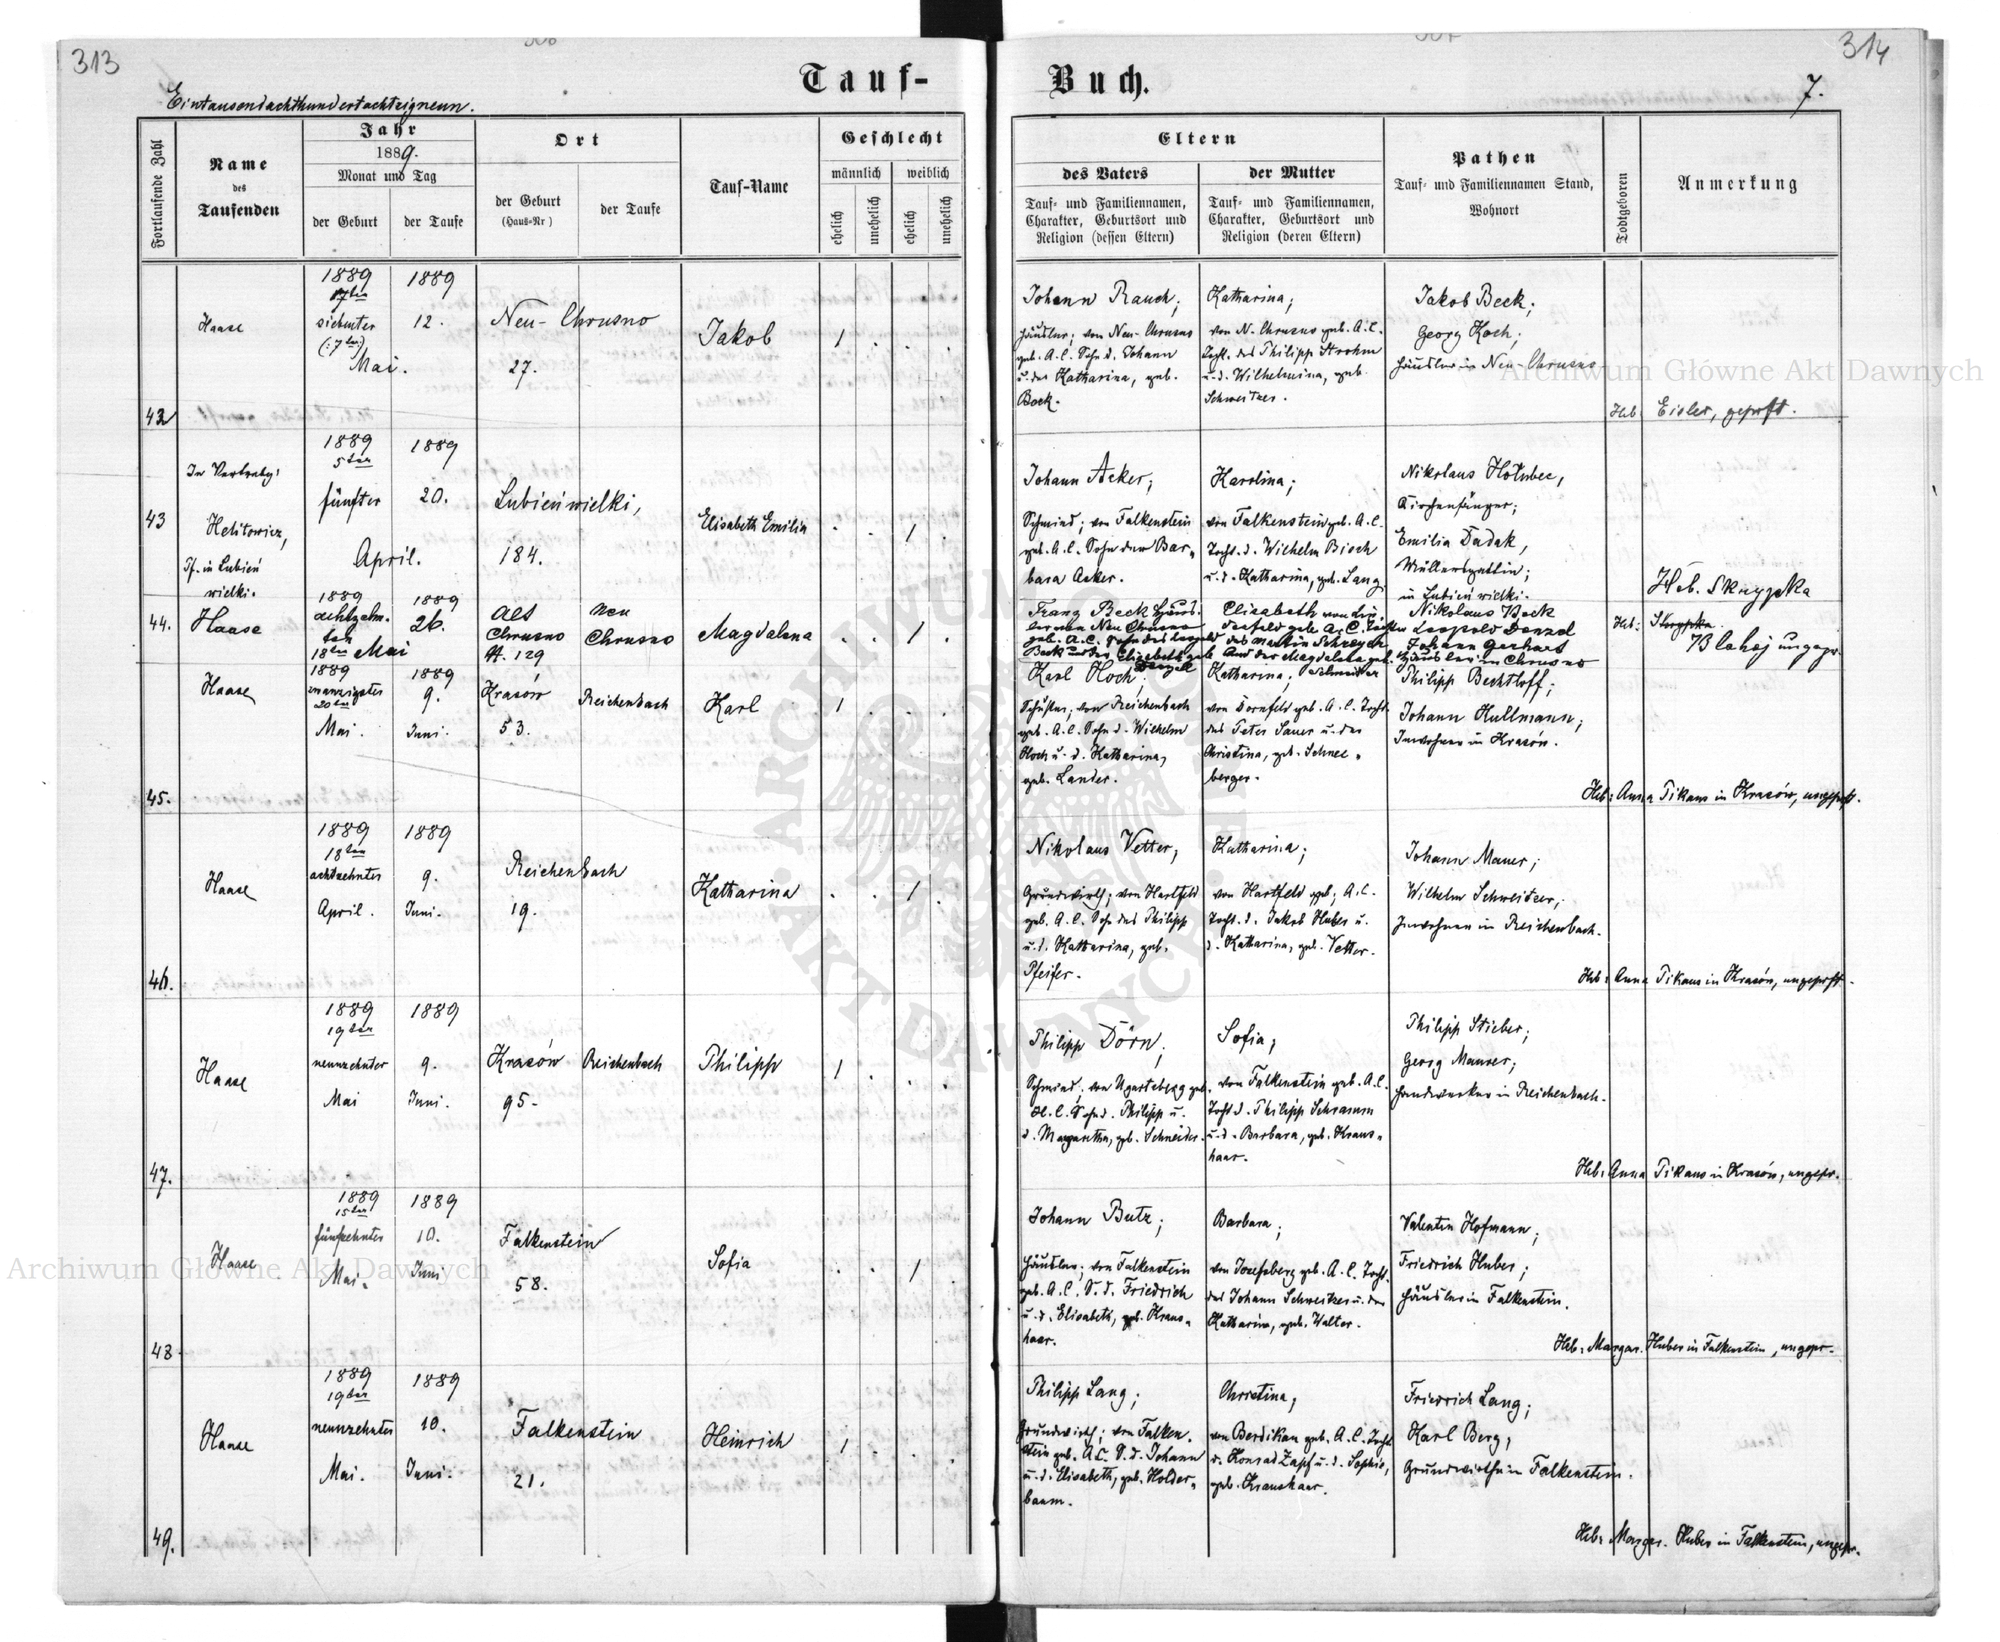 313
314
Tauf-
Buch.
7.
Eintausendachthundertachtzigneun.
Fortlaufende Zahl
Name
des
Taufenden
Jahr
1889.
Monat und Tag
der Geburt
der Taufe
Ort
der Geburt
(Haus-Nr)
der Taufe
Tauf-Name
Geschlecht
männlich
weiblich
ehelich
unehelich
ehelich
unehelich
Eltern
des Vaters
der Mutter
Tauf- und Familiennamen,
Charakter, Geburtsort und
Religion (dessen Eltern)
Tauf- und Familiennamen,
Charakter, Geburtsort und
Religion (deren Eltern)
Pathen
Tauf- und Familiennamen Stand,
Wohnort
Todtgeboren
Anmerkung
42
Haase
1889
siebenter
(:7ter:)
Mai.
1889
12.
Neu-Chrusno
27.
Jakob
1 . . .
Johann Rauch;
Häusler; von Neu-Chrusno
geb. A.C. Sohn d. Johann
u. der Katharina, geb.
Beck.
Katharina;
von N. Chrusno geb. A.C.
Tocht. des Philipp Strohm
u. d. Wilhelmina, geb.
Schweitzer.
Jakob Beck;
Georg Koch;
Häusler in Neu-Chrusno
Heb: Eisler, geprft.
43
In Vertretg:
Helitowicz,
Pf. in Lubień
wielki.
1889
5ter
fünfter
April.
1889
20.
Lubień wielki,
184.
Elisabeth Emilia
. . 1 .
Johann Acker;
Schmied; von Falkenstein
geb. A.C. Sohn der Bar-
bara Acker.
Karolina;
von Falkenstein geb. A.C.
Tocht. d. Wilhelm Bisch
u. d. Katharina, geb. Lang
Nikolaus Hołubec,
Kirchensänger;
Emilia Dadak,
Müllersgattin;
in Lubień wielki.
Heb. Skrypka
44.
Haase
1889
achtzehn-
ter
18ter Mai
1889
26.
Alt
Chrusno
H. 129
Neu
Chrusno
Magdalena
. . 1 .
Franz Beck Häus-
ler von Neu Chrusno
geb. A.C. Sohn des Leopold
Beck u. der Elisabeth geb.
Denzel
Elisabeth von Lin-
denfeld geb. A.C. Tochter
des Martin Schreyer
und der Magdalena geb.
Schneider
Nikolaus Beck
Leopold Denzel
Johann Gerhard
Häusler in Chrusno
Heb: Skrypka.
Blahoj ungepr.
45.
Haase
1889
zwanzigster
20ter
Mai.
1889
9.
Juni.
Krasów
53.
Reichenbach
Karl
1 . . .
Karl Hoch;
Schuster; von Reichenbach
geb. A.C. Sohn d. Wilhelm
Hoch u. d. Katharina,
geb. Lander.
Katharina;
von Dornfeld geb. A.C. Tocht.
des Peter Sauer u. der
Christina, geb. Schnee-
berger.
Philipp Bechtloff;
Johann Kullmann;
Inwohner in Krasów.
Heb: Anna Tikans in Krasów, ungeprft.
46.
Haase
1889
18ter
achtzehnter
April.
1889
9.
Juni.
Reichenbach
19.
Katharina
. . 1 .
Nikolaus Vetter;
Grundwirth; von Hartfeld
geb. A.C. Sohn des Philipp
u. d. Katharina, geb.
Pfeifer.
Katharina;
von Hartfeld geb; A.C.
Tocht. d. Jakob Huber u.
d. Katharina, geb. Vetter.
Johann Mauer;
Wilhelm Schweitzer;
Inwohner in Reichenbach.
Heb: Anna Tikans in Krasów, ungeprft.
47.
Haase
1889
19ter
neunzehnter
Mai
1889
9.
Juni.
Krasów
95.
Reichenbach
Philipp
1 . . .
Philipp Dörn;
Schmied; von Ugartsberg geb.
H.C. Sohn d. Philipp u.
d. Margaretha, geb. Schneider.
Sofia;
von Falkenstein geb. A.C.
Tocht d. Philipp Schramm
u. d. Barbara, geb. Kraus-
haar.
Philipp Stieber;
Georg Maurer;
Handwerker in Reichenbach.
Heb: Anna Tikans in Krasów, ungepr.
48.
Haase
1889
15ter
fünfzehnter
Mai.
1889
10.
Juni
Falkenstein
58.
Sofia
. . 1 .
Johann Butz;
Häusler; von Falkenstein
geb. A.C. S. d. Friedrich
u. d. Elisabeth, geb. Kraus-
haar.
Barbara;
von Josefsberg geb. A.C. Tocht.
des Johann Schweitzer u. der
Katharina, geb. Walter.
Valentin Hofmann;
Friedrich Huber;
Häusler in Falkenstein.
Heb: Margar. Huber in Falkenstein, ungepr.
49.
Haase
1889
19ter
neunzehnter
Mai.
1889
10.
Juni.
Falkenstein
21.
Heinrich
1 . . .
Philipp Lang;
Grundwirth; von Falken-
stein geb. A.C. S. d. Johann
u. d. Elisabeth, geb. Holder-
baum.
Christina;
von Berdikau geb. A.C. Tocht
d. Konrad Zapf u. d. Sophie,
geb. Kraushaar.
Friedrich Lang;
Karl Berg;
Grundwirthe in Falkenstein.
Heb: Margar. Huber in Falkenstein, ungepr.
Archiwum Główne Akt Dawnych
Archiwum Główne Akt Dawnych
ARCHIWUM GŁÓWNE
AKT DAWNYCH